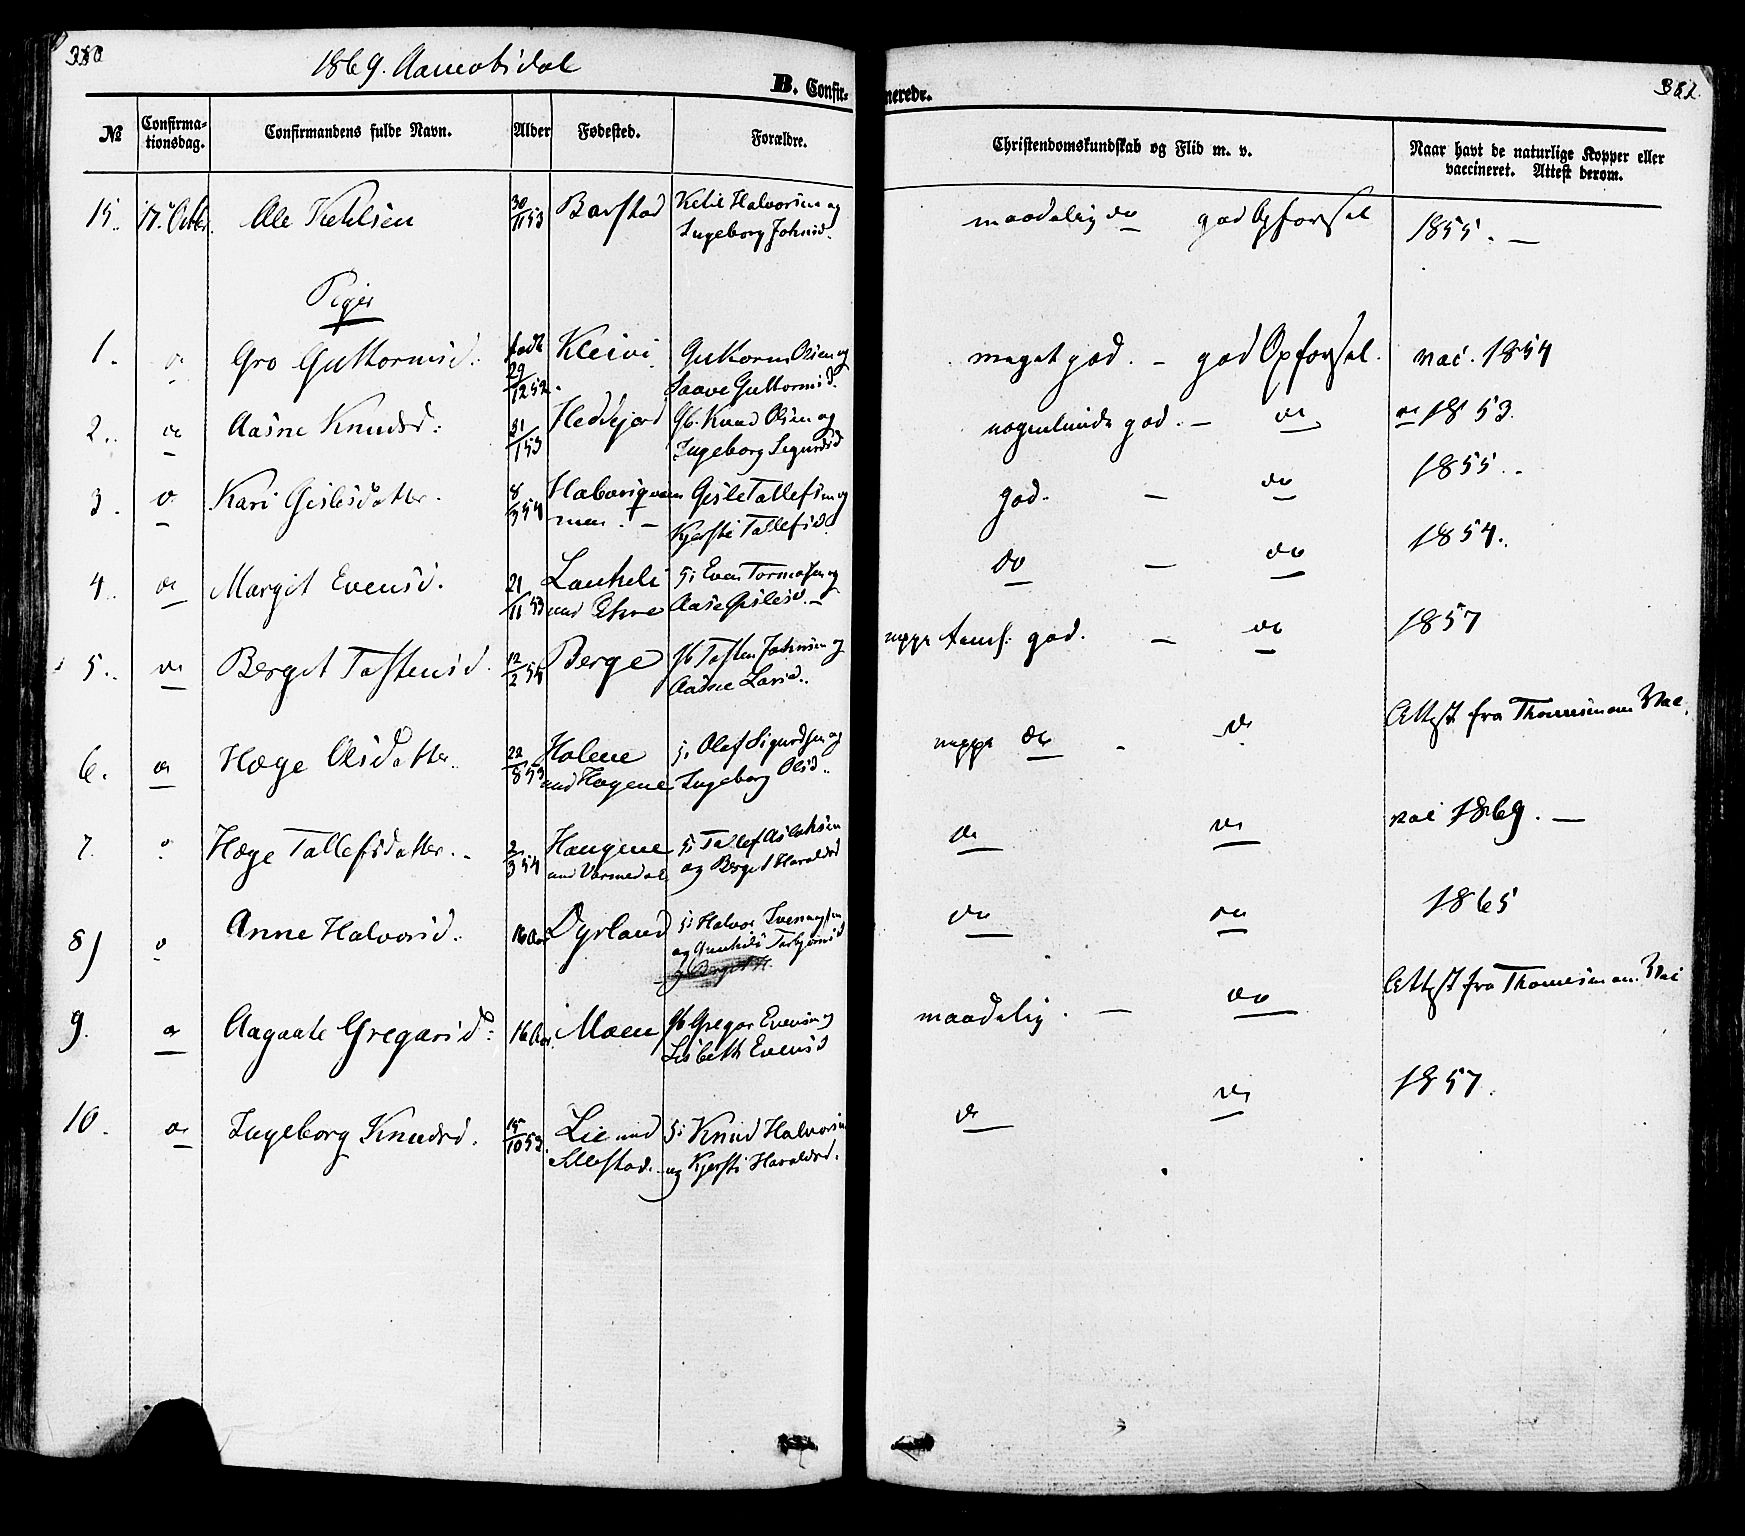 380
1869. Aamotsdal
B. Confir-
merede.
382.
№
Confirma-
tionsdag.
Confirmandens fulde Navn.
Alder
Fødested.
Forældre.
Christendomskundskab og Flid m. v.
Naar havt de naturlige Kopper eller
vaccineret. Attest derom.
15. 17. Octbr. Ole Ketilsen 30/11 53 Barstad Ketil Halvorsen og
Ingeborg Johnsd.
maadelig do god Opførsel 1855. —
Piger
1. do Gro Guttormsd. født 29/12 52. Kleivi Guttorm Olsen og
Saave Guttormsd.
meget god. — god Opførsel. vac. 1854
2. do Aasne Knudsd. 31/1 53 Heddejord Gb. Knud Olsen og
Ingeborg Sigurdsd
nogenlunde god. — do do 1853.
3. do Kari Gislesdatter. 8/3 54 Gisle Tallefsen og
Kjersti Tallefsd.
god. — do 1855.
4. do Margit Evensd. 21/11 53 Lonheli
und Ehre Gi Even Tormodsen og
Aase Gislesd. —
do — do 1854.
5. do Berget Tostensd. 12/2 54 Berge Gb Tosten Johnsen og
Aasne Larsd.
neppe temf. god. — do 1857
6. do Hæge Olsdatter. 22/8 53 Holene
und Haugene Gi Olaf Sigurdsen og
Ingeborg Olsd.
neppe do - do Attest fra Thomesen om Vac.
7. do Hæge Tallefsdatter. 2/3 54 Haugene
und Vaamedal Gi Tallef Aslaksen
og Berget Haraldsd
do do vac 1869. —
8) do Anne Halvorsd. 16 Aar Dyrland Gi Halvor
og Gunhild Torbjørnsd
do do 1865
9. do Aagaate Gregarsd. 16 Aar. Moen Gb Gregar Evensen og
Lisbeth Evensd
maadelig. — do Attest fra Thomesen om Vac
10. do Ingeborg Knudsd. 15/10 53. Lie und
Gi Knud Halvorsen
og Kjersti Haraldsd.
do do 1857.